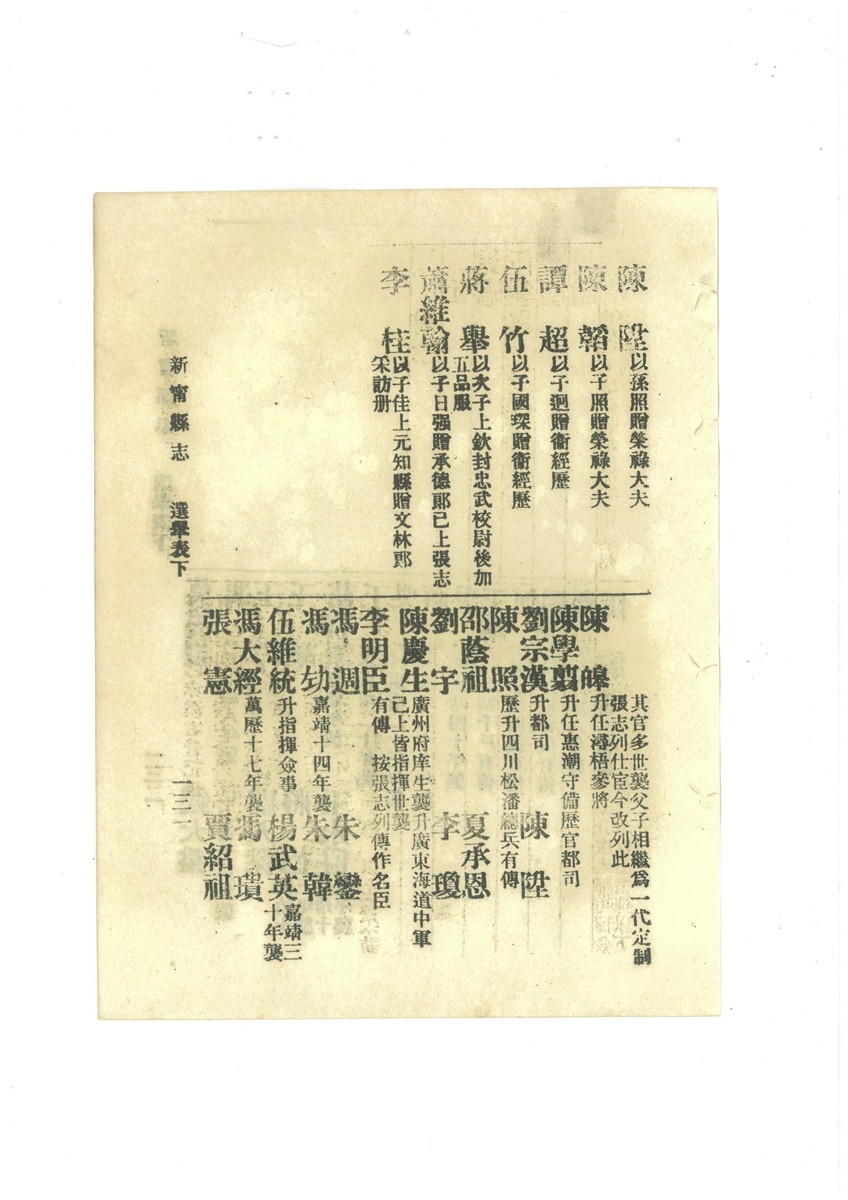 陳陞以孫照贈榮祿大夫
陳韜以子照贈榮祿大夫
譚超以子迥贈衞經歷
伍竹以子國琛贈衞經歷
蔣舉以次子上欽封忠武校尉後加
五品服
蕭維翰以子日强贈承德郎已上張志
李桂以子佳上元知縣贈文林郎
采訪册
新甯縣志 選舉表下
一三一
其官多世襲父子相繼爲一代定制
張志列仕宦今改列此
陳皞升任潯梧參將
陳學翦升任惠潮守備歷官都司
劉宗漢升都司 陳陞
陳照歷升四川松潘總兵有傳
邵蔭祖 夏承恩
劉宇 李瓊
陳慶生廣州府庠生襲升廣東海道中軍
已上皆指揮世襲
李明臣有傳 按張志列傳作名臣
馮週 朱鑾
馮𤤴嘉靖十四年襲 朱韓
伍維統升指揮僉事 楊武英嘉靖三
十年襲
馮大經萬歷十七年襲 馮璝
張憲 賈紹祖